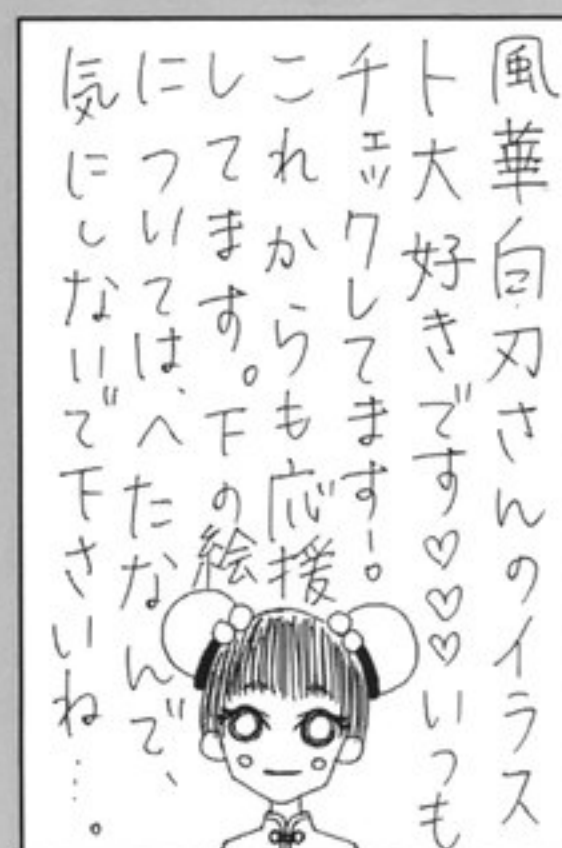 風華白刃さんのイラス
ト大好きです♡♡♡いつも
チェックしてます!。
これからも応援
してます。下の絵
については、へたなんで、
気にしないで下さいね…。